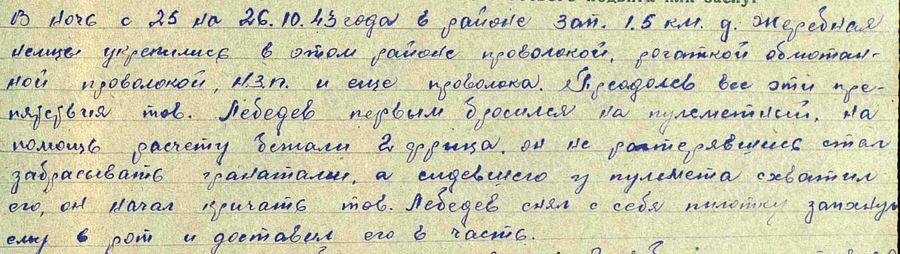 В ночь с 25 на 26.10.43 года в районе зап. 1.5 км. д. Жеребная
немцы укрепились в этом районе проволокой, рогаткой обмотан-
ной проволокой, М.З.П. и еще проволока. Преодолев все эти пре-
пятствия тов. Лебедев первым бросился на пулеметный. На
помощь расчету бежали 2 фрица, он не растерявшись стал
забрасывать гранатами, а сидевшего у пулемета схватил
его, он начал кричать тов. Лебедев снял с себя пилотку запхнул
ему в рот и доставил его в часть.